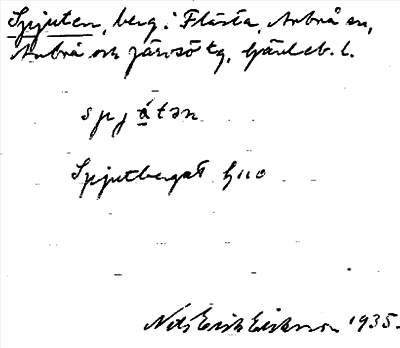 Spjuten, berg i Flästa, Arbrå sn,
Arbrå och Järvsö tg, Gävleb. l.
spjátən
Spjutberget h110
Nils Erik Eriksson 1935.